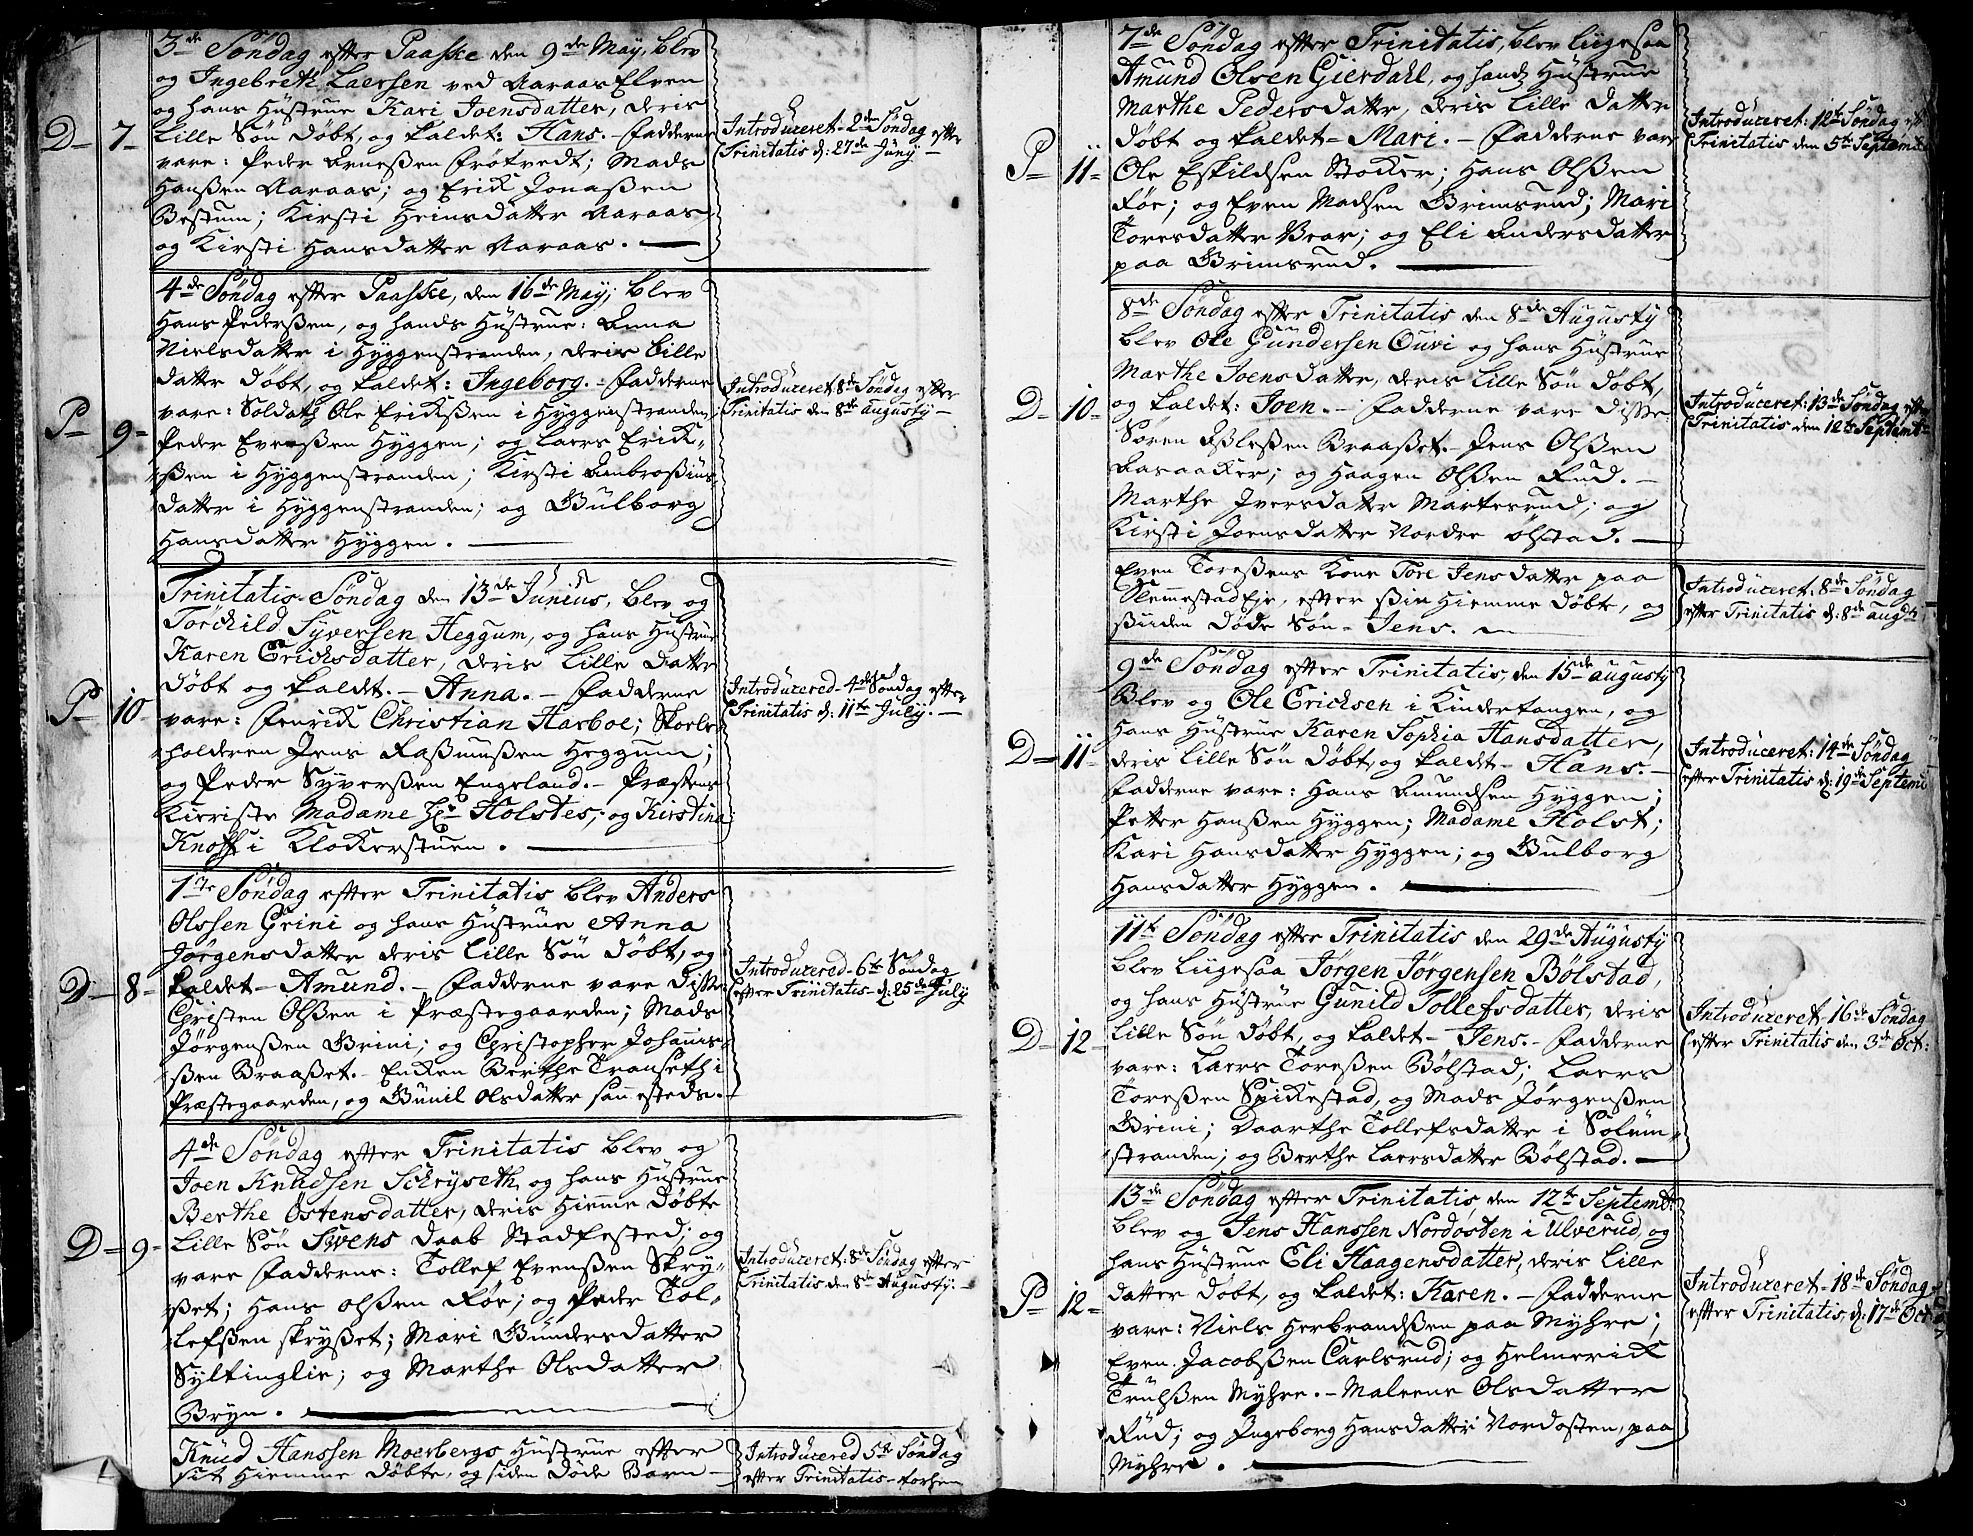 3de Søndag efter Paaske den 9de May, blev
og Ingebreth Laersen ved Aaraas Elven
og hans Hustrue Kari Joensdatter, deris
D- 7- Lille Søn døbt, og kaldet: Hans. - Fadderne
vare: Peder Arneßen Frøtvedt; Mads
Hanßen Aaraas; og Erick Jonaßen
Bestum; Kirsti Heinsdatter Aaraas
og Kirsti Hansdatter Aaraas.
Introduceret - 2den Søndag efter
Trinitatis d: 27de Junij
4de Søndag efter Paaske, den 16de May, blev
Hans Pederßen, og hands Hustrue: Anna
Nielsdatter i Hyggenstranden, deris lille
datter døbt, og kaldet: Ingeborg. - Fadderne
P- 9- vare: Soldat Ole Erickßen i Hyggenstranden
Peder Evenßen Hyggen; og Laers Erick-
ßen i Hyggenstranden; Kirsti Ambroßius
datter i Hyggenstranden; og Gulborg
Hansdatter Hyggen.
Introduceret 8de Søndag efter
Trinitatis den 8de augusty
Trinitatis Søndag den 13de Junius, blev og
Torchild Syversen Heggum, og hans Hustrue
Karen Erichsdatter, deris Lille datter
døbt og kaldet. - Anna. - Fadderne
P- 10- vare: Henrick Christian Harboe; Skole-
holderen Jens Raßmusßen Heggum;
og Peder Syverßen Engeland. - Præstens
Kieriste Madame Holstes, og Kirstina
Knoff i Klockerstuen.
Introducered - 4de Søndag efter
Trinitatis d: 11te July.
1ste Søndag efter Trinitatis blev Anders
Olssen Grini og hans Hustrue Anna
Jørgensdatter deris Lille Søn døbt, og
D- 8- kaldet - Amund. - Fadderne vare disse
Christen Olßen i Præstegaarden; Mads
Jørgenßen Grini; og Christopher Johannis-
ßen Braaßet. - Encken Berthe Transeth i
Præstegaarden, og Gunil Olsdatter sam̅esteds.
Introducered - 6te Søndag
efter Trinitatis - d: 25de July
4de Søndag efter Trinitatis blev og
Joen Knudsen Schryseth, og hans Hustrue
Berthe Østensdatter, deris Hiem̅e døbte
D- 9- Lille Søn Svens Daab Stadfested; og
vare Fadderne: Tollef Evenßen Skry-
ßet; Hans Olßen Røe; og Peder Tol-
lefsen Skryßet; Mari Gundersdatter
Syltinglie; og Marthe Olsdatter
Bryn.
Introduceret - 8de Søndag efter
Trinitatis den 8de Augusty.
Knud Hanssen Moerbergs Hustrue efter
sit Hiemme døbte, og siden døde Barn
Introducered 5te Søndag
efter Trinitatis - forhen
7de Søndag efter Trinitatis, blev liigesaa
Amund Olsen Gierdahl, og hands Hustrue
Marthe Pedersdatter, deris Lille datter
P- 11- døbt og kaldet - Mari. - Fadderne vare
Ole Eskildsen Stocker; Hans Olßen
Røe; og Even Madsen Grimsrud; Mari
Toresdatter Bear; og Eli Andersdatter
paa Grimsrud.
Introduceret: 12te Søndag eft
Trinitatis den 5te Septemb
8de Søndag efter Trinitatis den 8de Augusty
blev Ole Gundersen Ouvi og hans Hustrue
Marthe Joensdatter, deris Lille Søn døbt,
D- 10- og kaldet: Joen. - Fadderne vare disse
Søren Aßleßen Braaßet. - Jens Olßen
Aasaacker; og Haagen Olßen Rud. -
Marthe Iversdatter Martesrud; og
Kirsti Joensdatter Nordre Ølstad.
Introduceret: 13de Søndag efter
Trinitatis den 12te Septemb
Even Toreßens Kone Tore Jensdatter paa
Slemmestad Eje, efter ßin Hiemme døbte, og
ßiiden døde Søn - Jens.
Introduceret: 8de Søndag
efter Trinitatis d: 8de augu
9de Søndag efter Trinitatis, den 15de augusty
Blev og Ole Erichsen i Kindertangen, og
Hans Hustrue Karen Sophia Hansdatter,
D- 11- deris Lille Søn døbt, og kaldet - Hans. -
Fadderne vare: Hans Amundsen Hyggen;
Petter Hanßen Hyggen; Madame Holst;
Kari Hansdatter Hyggen; og Gulborg
Hansdatter Hyggen.
Introduceret: 14de Søndag
efter Trinitatis d: 19de Septemb
11te Søndag efter Trinitatis den 29de Augusty
blev Liigesaa Jørgen Jørgensen Bølstad,
og hans Hustrue Gunild Tollefsdatter, deris
D- 12- Lille Søn døbt, og kaldet - Jens. - Fadderne
vare: Laers Toreßen Bølstad; Laers
Toreßen Spickestad, og Mads Jørgenßen
Grini; Daarthe Tollefsdatter i Solum-
stranden; og Berthe Laersdatter Bølstad.
Introduceret - 16de Søndag
efter Trinitatis den 3de Oct:
13de Søndag efter Trinitatis, den 12te Septemb:
blev og Jens Hanssen Nordosten i Ulverud, og
hans Hustrue Eli Haagensdatter, deris Lille
datter døbt, og kaldet: Karen. - Fadderne
P- 12- vare: Niels Herbrandßen paa Myhre;
Even Jacobßen Carlsrud; og Helmerick
Trulßen Myhre. - Maleene Olsdatter
Rud; og Ingeborg Hansdatter Nordosten, paa
Myhre.
Introduceret - 18de Søndag
efter Trinitatis, d: 17de Oct